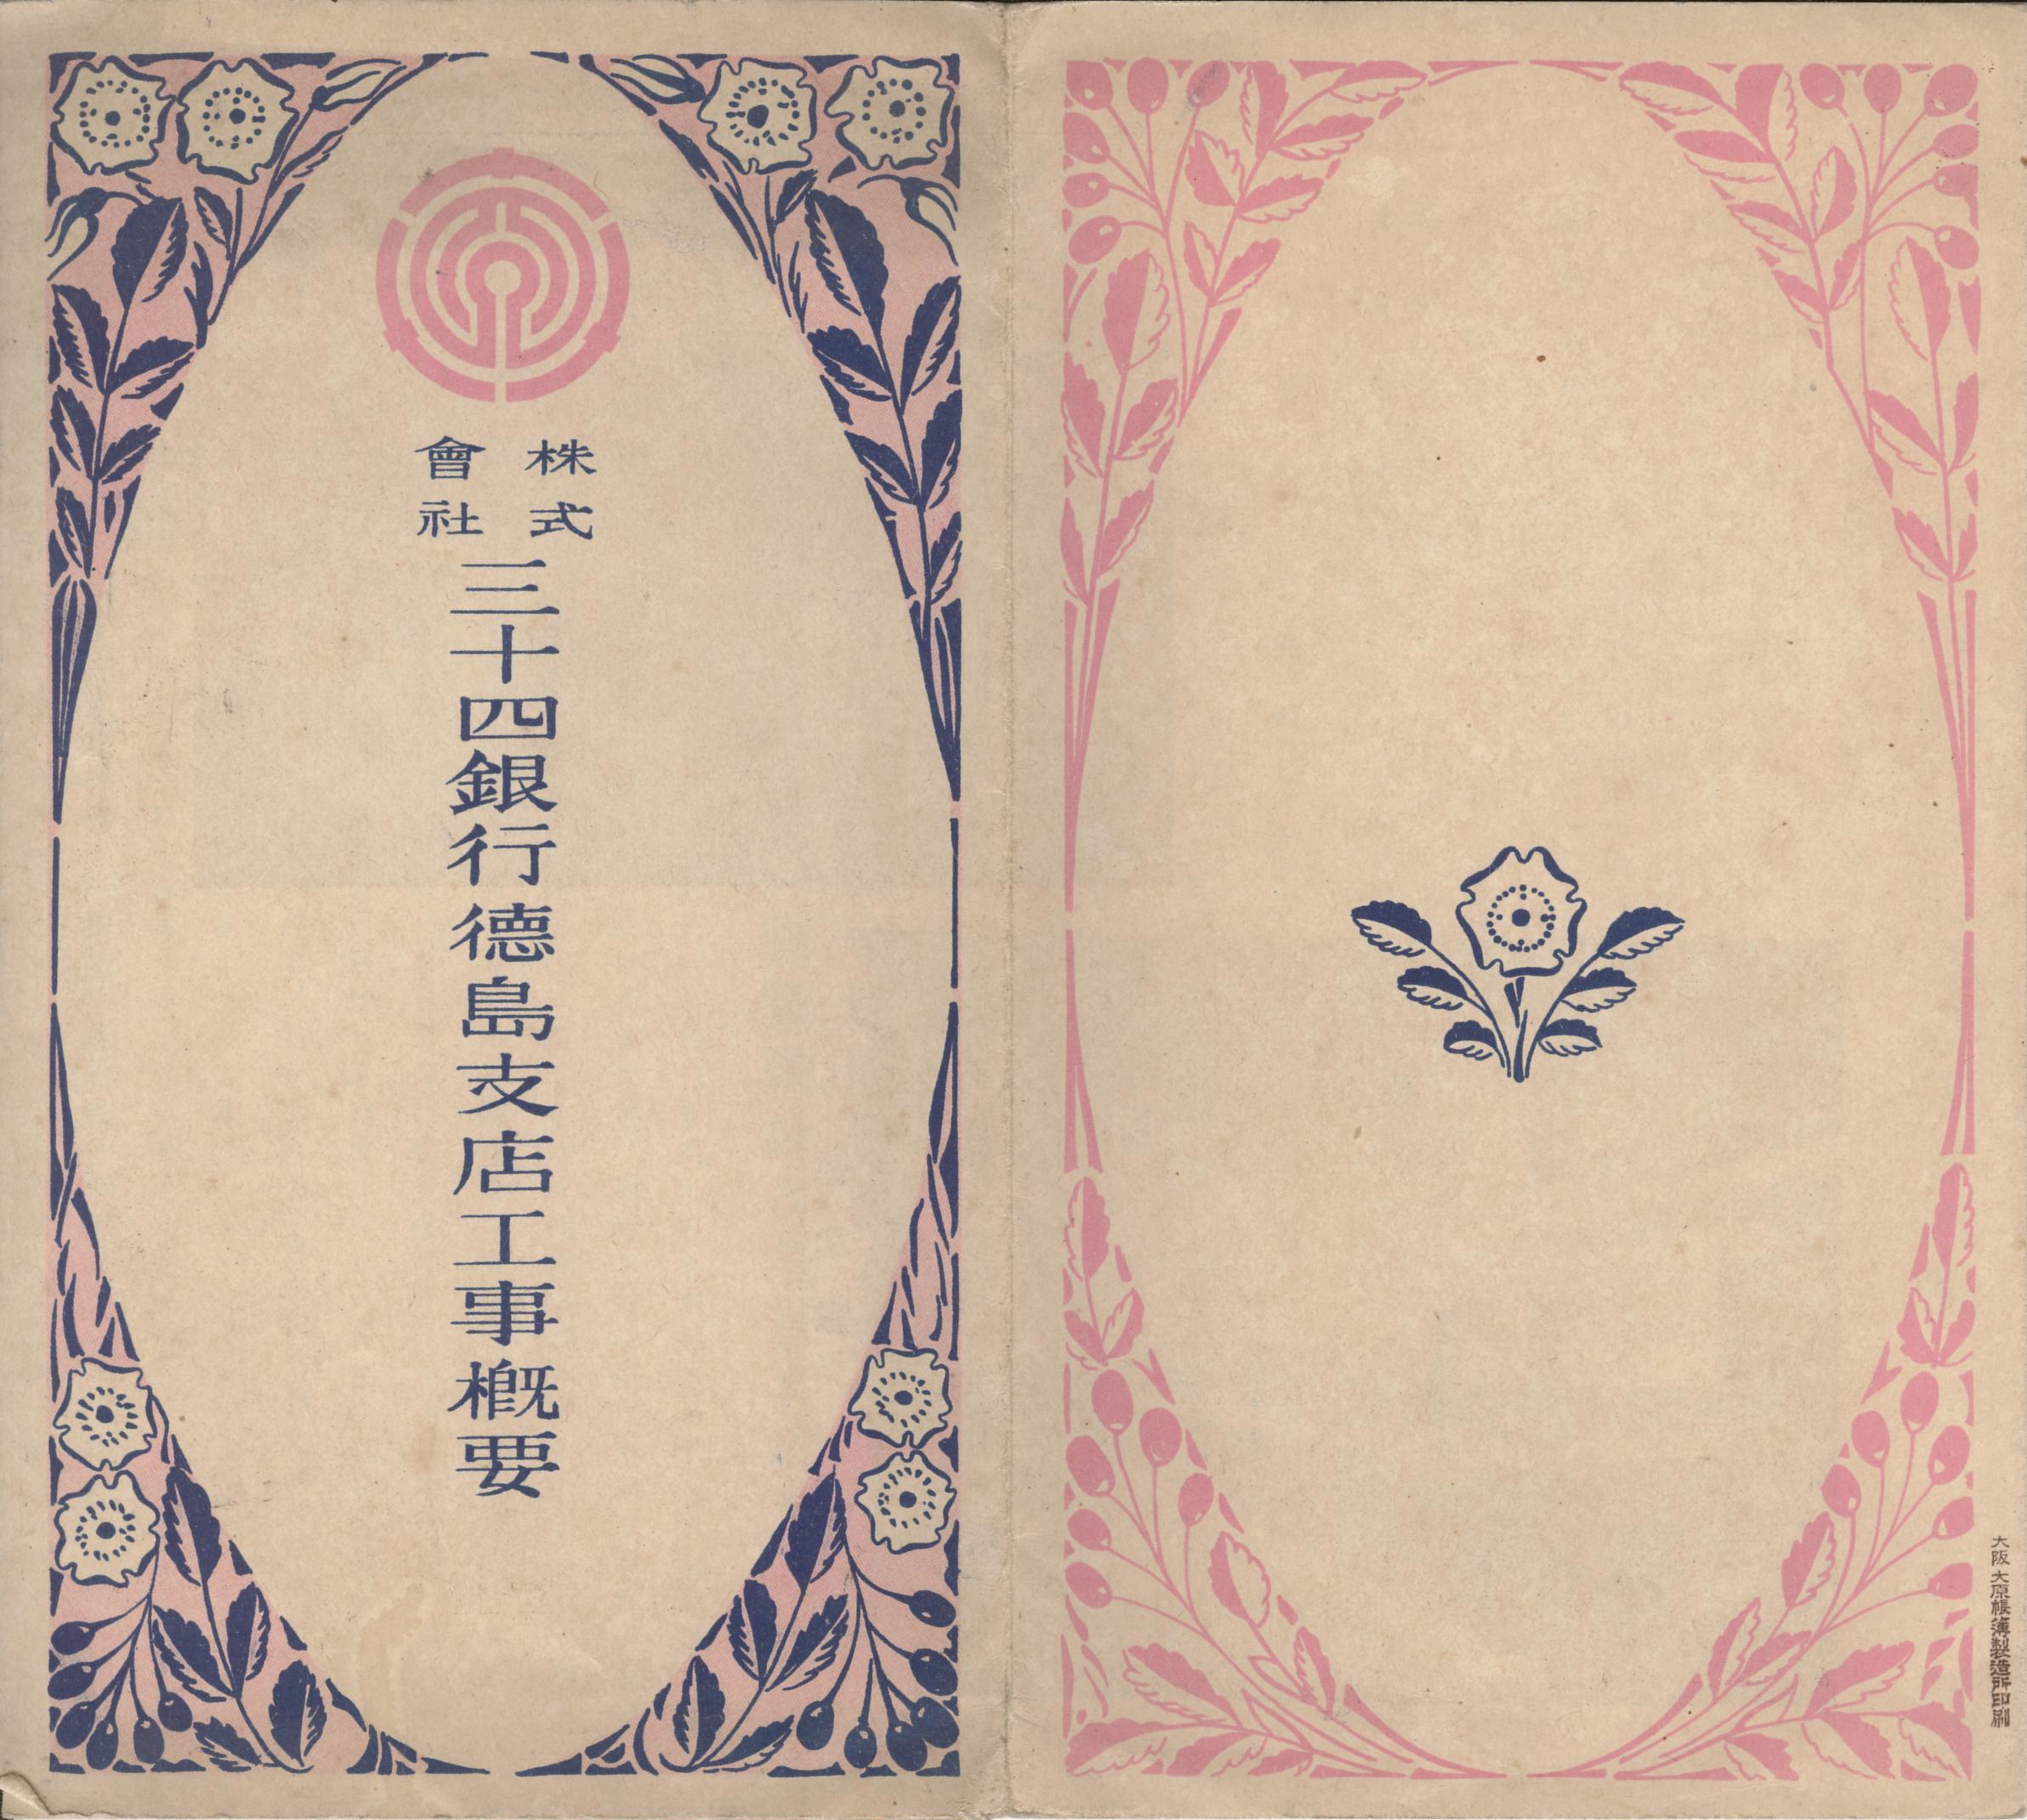 株式
會社
三十四銀行德島支店工事概要
大阪 大原帳簿製造所印刷